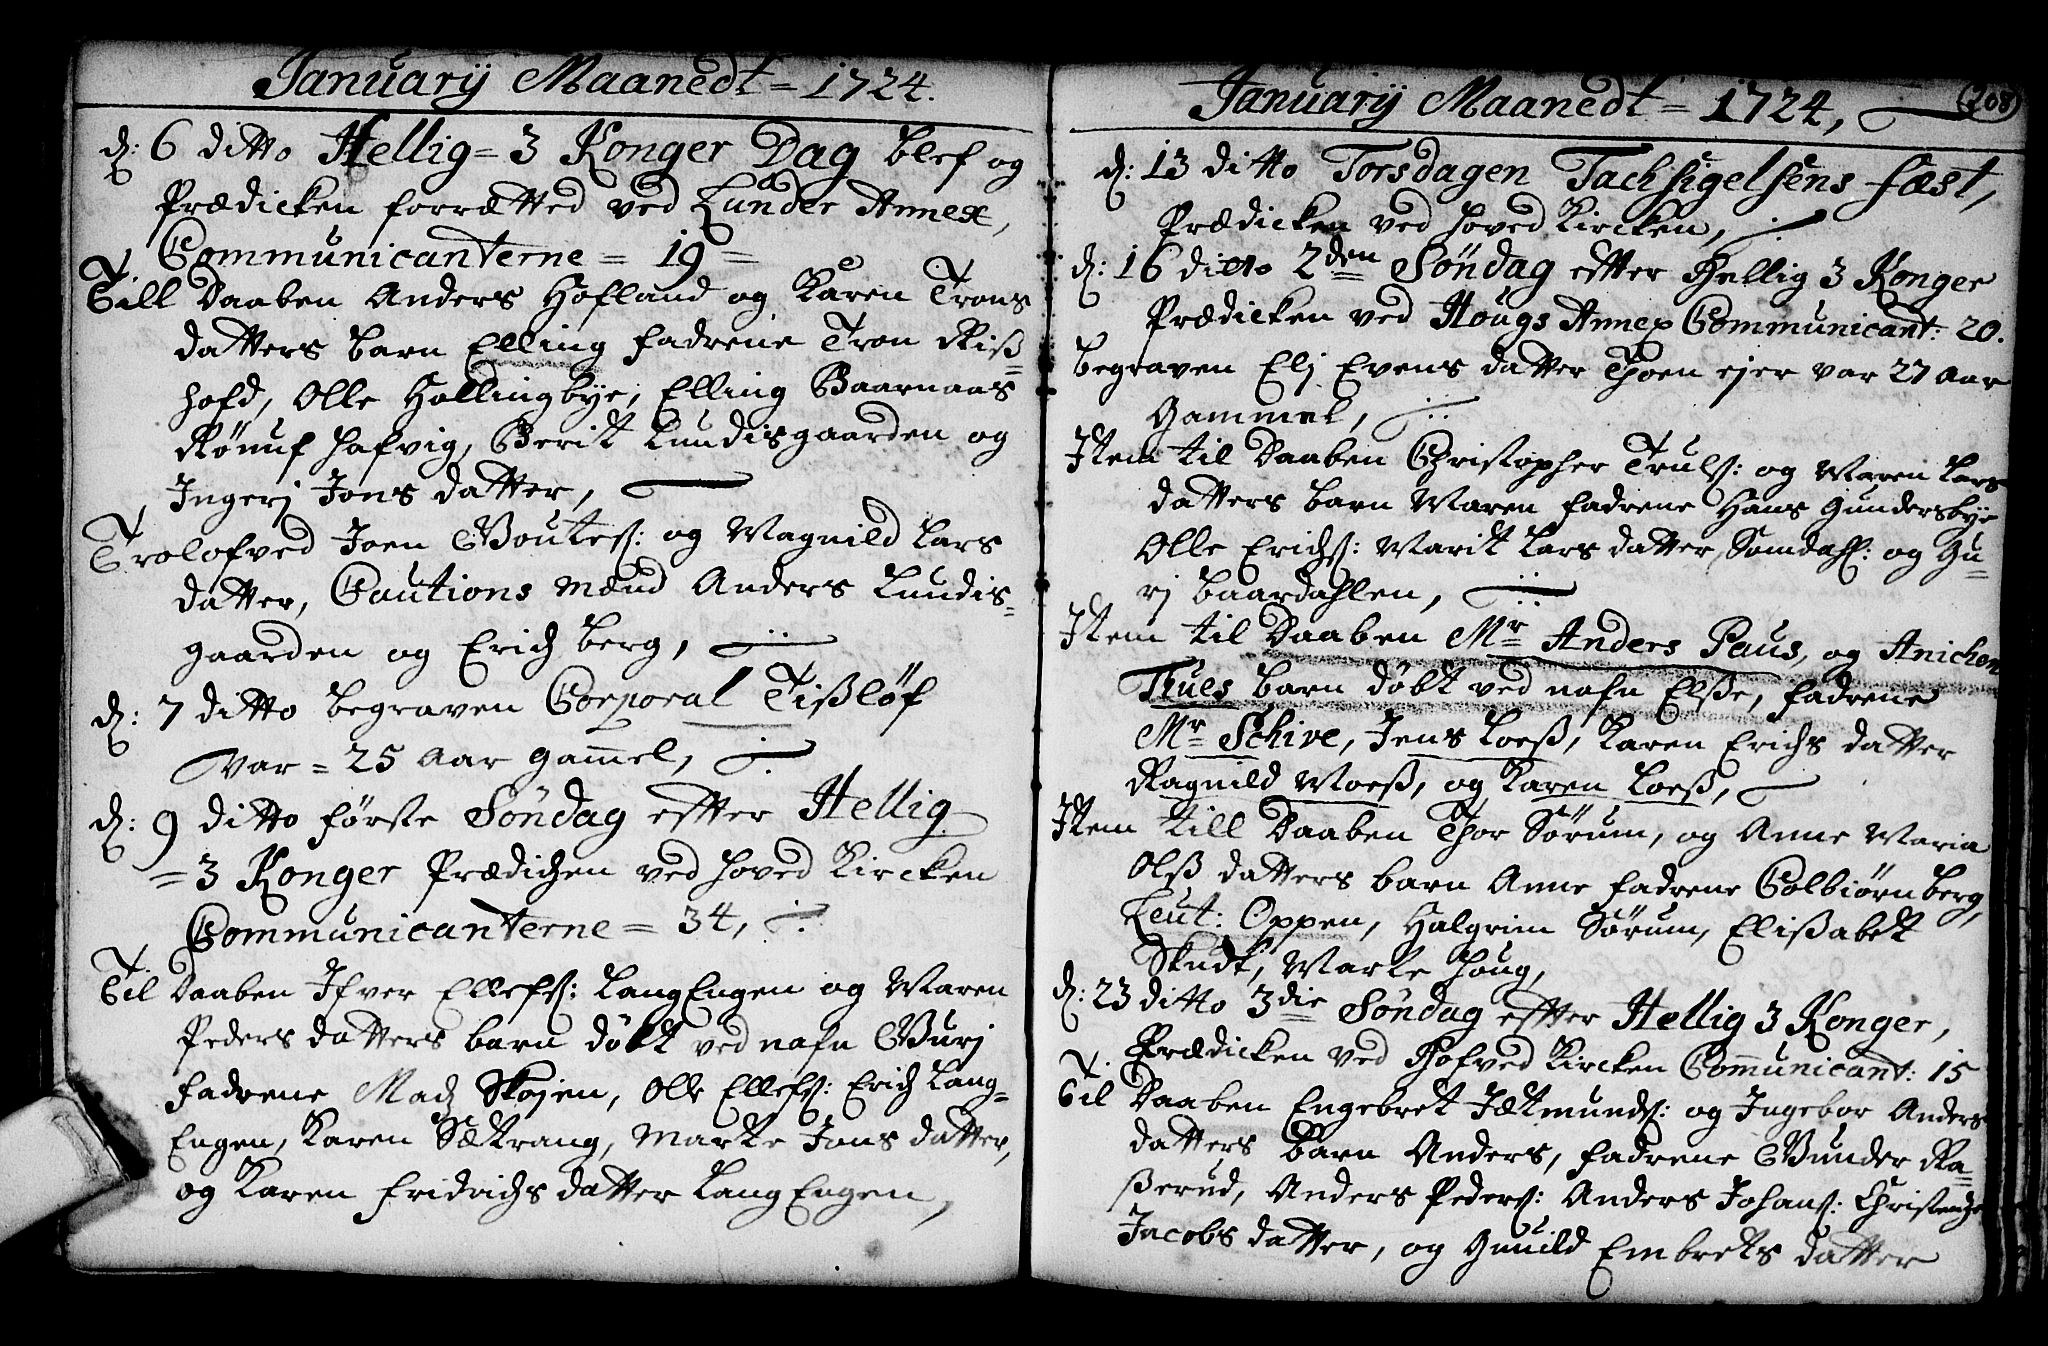 Januarij Maanedt = 1724.
d: 6 ditto Hellig = 3 Konger Dag blef og
Prædicken forrætted ved Lunder Annex,
Communicanterne = 19 =
Till Daaben Anders Hofland og Karen Trons
datters barn Elling fadrene Tron Riß=
hofd, Olle Hallingbye, Elling Baarnaas
Rönuf hafvig, Berit Lundisgaarden og
Ingerj Jons datter,
Trolofved Joen Goutes: og Magnild Lars
datter, Cautions mænd Anders Lundis=
gaarden og Erich berg,
d: 7 ditto begraven Corporal Tißlöf
var = 25 aar gam̄el,
d: 9 ditto förste Söndag efter Hellig
= 3 Konger Prædichen ved hoved Kircken
Communicanterne = 34,
Til Daaben Ifver Ellefs: LangEngen og Maren
Peders datters barn döbt ved nafn Gurj
fadrene Mads Skojen, Olle Ellefs: Erich Lang=
Engen, Karen Sætrang, Marte Jons datter,
og Karen fridrichs datter Lang Engen,
Januarij Maanedt = 1724, (208)
d: 13 ditto Torsdagen Tachsigelsens fæst,
Prædicken ved hoved Kircken,
d: 16 ditto 2den Söndag efter Hellig 3 Konger
Prædicken ved Hougs Annex Communicant: 20.
begraven Elj Evens datter Thoen ejer var 27 aar
Gammel,
Item til Daaben Christopher Truls: og Maren Lars
datters barn Maren fadrene Hans Gundersbye
Olle Erichs: Marit Lars datter, Somdahl: og Gu=
rj Baardahlen,
Item til Daaben Mr Anders Paus, og Anichen
Thues barn döbt ved nafn Elße, fadrene
Mr Schive, Jens Loeß, Karen Erichs datter
Ragnild Moeß, og Karen Loeß,
Item till Daaben Thor Sörum, og Anne Maria
Olß datters barn Anne fadrene Colbiörn berg,
Leut: Oppen, Halgrim Sörum, Elißabet
Skudt, Marte Houg,
d: 23 ditto 3die Söndag efter Hellig 3 Konger,
Prædicken ved Hofved Kircken Com̄unicant: 15
Til Daaben Engebret Jætmunds: og Ingebor Anders
datters barn Anders, fadrene Gunder Ra=
ßerud, Anders Peders: Anders Johans: Christentze
Jacobs datter, og Gunild Embrets datter